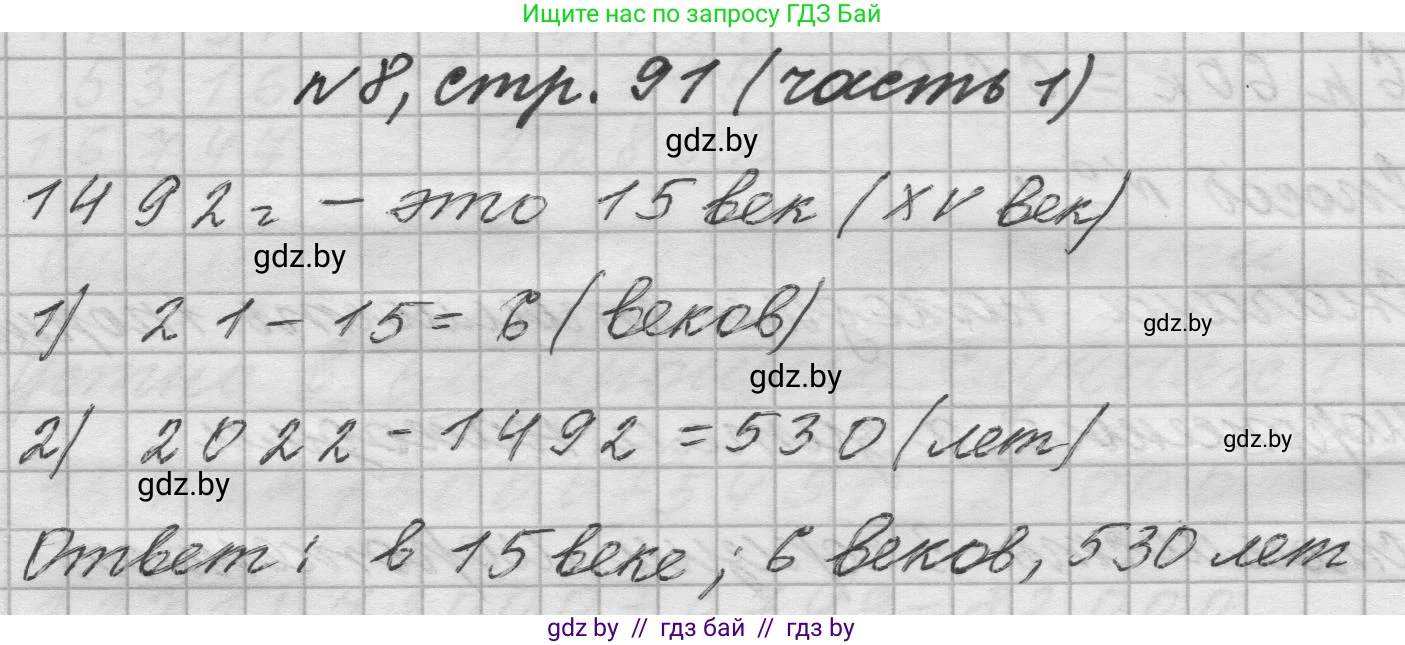 Ищите нас по запросу ГДЗ Бай
№8, стр. 91 (часть 1)
gdz.by
1492 г. – это 15 век (XV век)
gdz.by
1) 21 – 15 = 6 (веков)
gdz.by
gdz.by
2) 2022 - 1492 = 530 (лет)
gdz.by
gdz.by
Ответ: в 15 веке; 6 веков, 530 лет
gdz by // гдз бай // гдз by